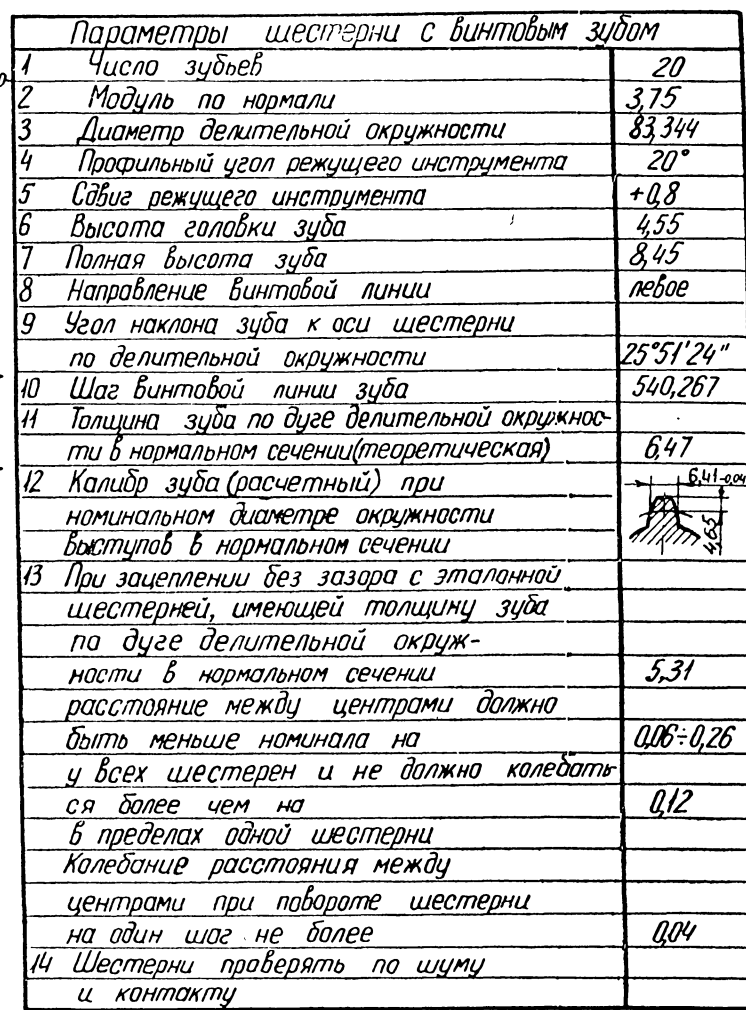 Параметры шестерни с винтовым зубом
1 Число зубьев 20
2 Модуль по нормали 3,75
3 Диаметр делительной окружности 83,344
4 Профильный угол режущего инструмента 20°
5 Сдвиг режущего инструмента +0,8
6 Высота головки зуба 4,55
7 Полная высота зуба 8,45
8 Направление винтовой линии левое
9 Угол наклона зуба к оси шестерни
по делительной окружности 25°51'24"
10 Шаг винтовой линии зуба 540,267
11 Толщина зуба по дуге делительной окружнос-
ти в нормальном сечении(теоретическая) 6,47
12 Калибр зуба (расчетный) при 6,41-0,04
номинальном диаметре окружности 4,65
выступов в нормальном сечении
13 При зацеплении без зазора с эталонной
шестерней, имеющей толщину зуба
по дуге делительной окруж-
ности в нормальном сечении 5,31
расстояние между центрами должно
быть меньше номинала на 0,06÷0,26
у всех шестерен и не должно колебать
ся более чем на 0,12
в пределах одной шестерни
Колебание расстояния между
центрами при повороте шестерни
на один шаг не более 0,04
14 Шестерни проверять по шуму
и контакту